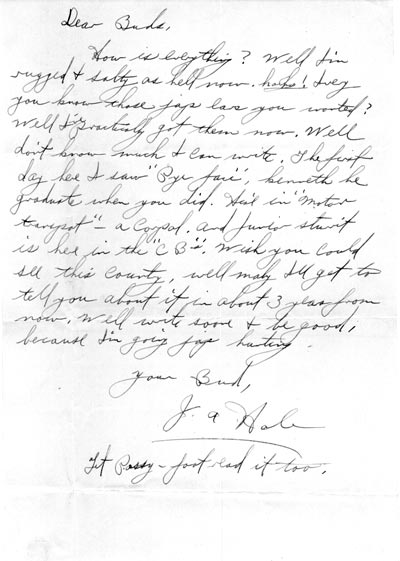 Dear Buds,
How is everything? Well I'm
rugged & salty as hell now. haha! Ivey
you know those jap ears you wanted?
Well I practically got them now. Well
don't know much I can write. The first
day here I saw "Bye face", kenneth he
graduate when you did. He's in "Motor
transpot" – a Corpol. And Junior
is here in the "C B"s. Wish you could
see this County, well maby I'll get to
tell you about it in about 3 years from
now. Well write soon & be good,
because I'm goin jap hunting.
your Bud,
J. A Hale
Let Possy – foot read it too.